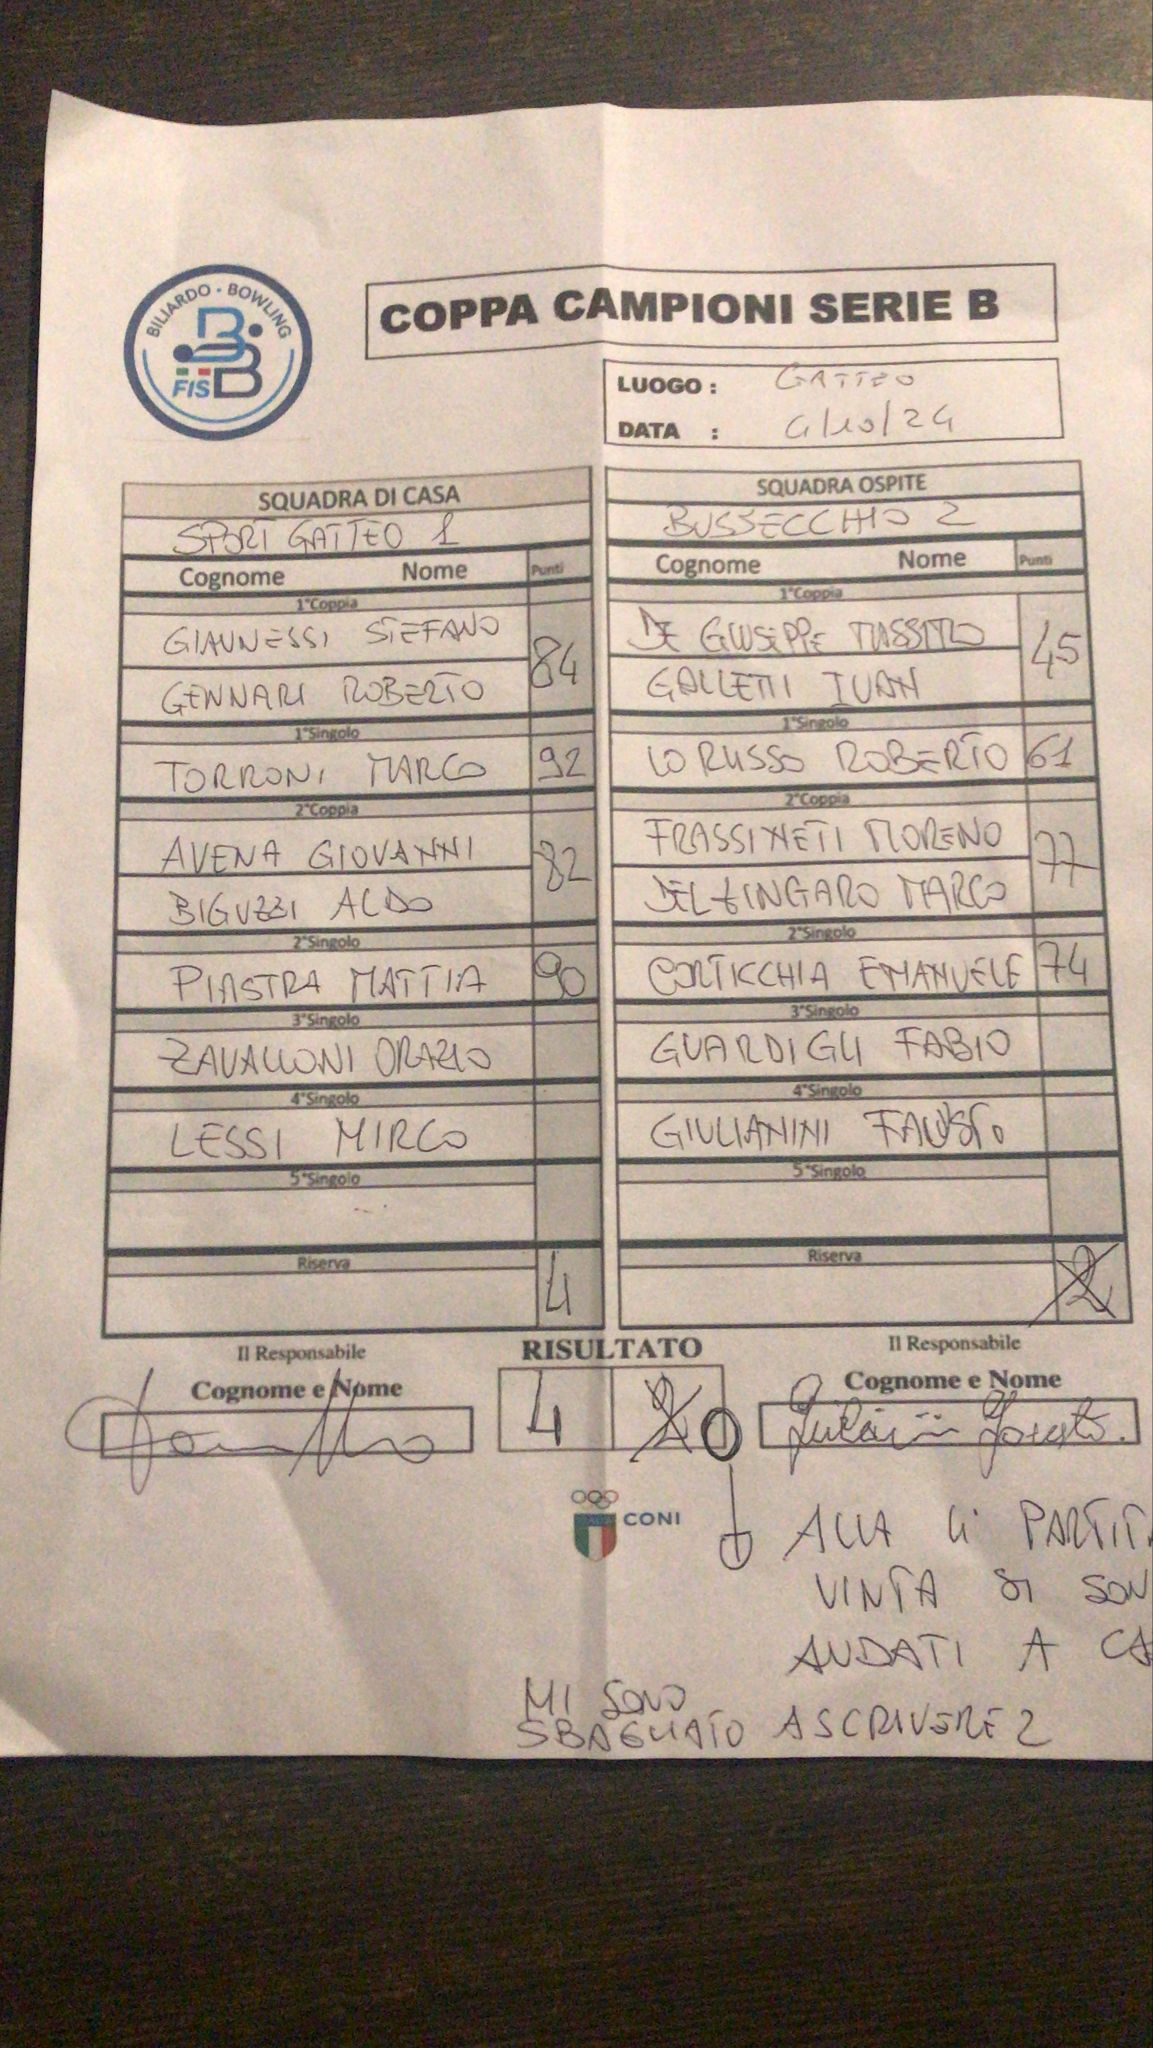 BILIARDO · BOWLING
FISBB
COPPA CAMPIONI SERIE B
LUOGO : GATTEO
DATA : 4/10/24
SQUADRA DI CASA
SPORT GATTEO 1
Cognome Nome Punti
1°Coppia
GIANNESSI STEFANO
84
GENNARI ROBERTO
1°Singolo
TORRONI MARCO 92
2°Coppia
AVENA GIOVANNI
82
BIGUZZI ALDO
2°Singolo
PIASTRA MATTIA 90
3°Singolo
ZAVALLONI ORAZIO
4°Singolo
LESSI MIRCO
5°Singolo
Riserva
4
SQUADRA OSPITE
BUSSECCHIO 2
Cognome Nome Punti
1°Coppia
DE GIUSEPPE MASSIMO
45
GALLETTI IVAN
1°Singolo
LO RUSSO ROBERTO 61
2°Coppia
FRASSINETI MORENO
77
DEL ZINGARO MARCO
2°Singolo
CORTICCHIA EMANUELE 74
3°Singolo
GUARDIGLI FABIO
4°Singolo
GIULIANINI FAUSTO
5°Singolo
Riserva
2
Il Responsabile
Cognome e Nome
RISULTATO
4 2 0
Il Responsabile
Cognome e Nome
Giulianini Fausto.
CONI
ALLA 4° PARTITA
VINTA SI SON
ANDATI A CA
MI SONO
SBAGLIATO A SCRIVERE 2